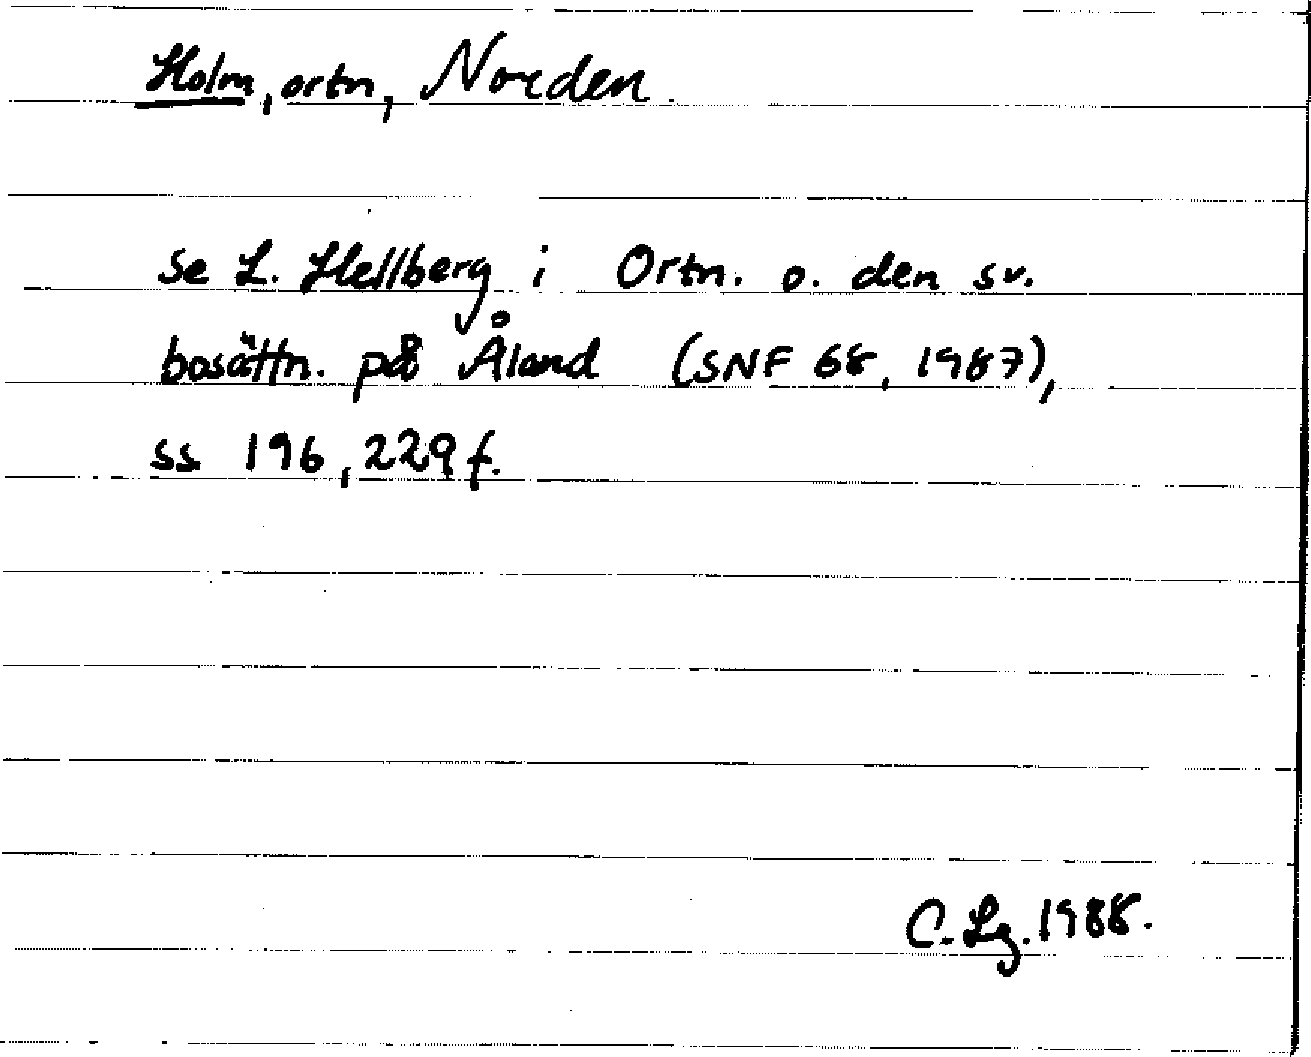 Holm, ortn, Norden.
se L. Hellberg i Ortn. o. den sv.
bosättn. på Åland (SNF 68, 1987),
ss 196, 229 f.
C. Lg. 1988.